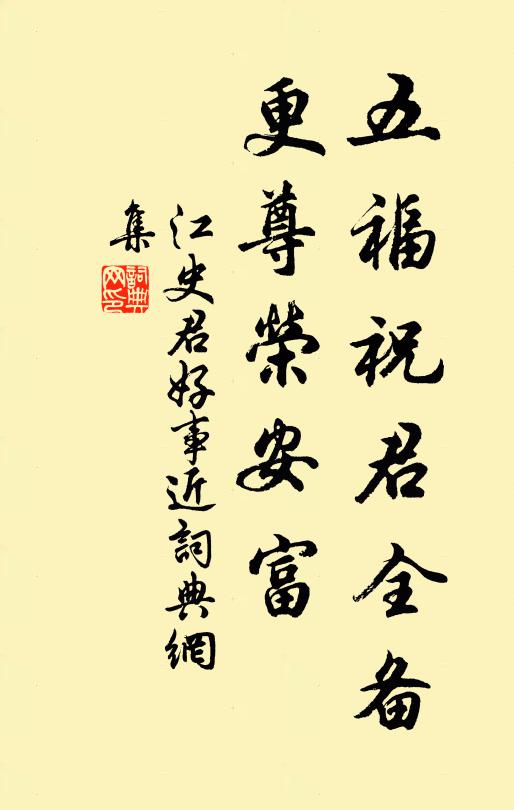 五福祝君全备
更尊榮安富
江史君好事近詞典網
集
詞典网印